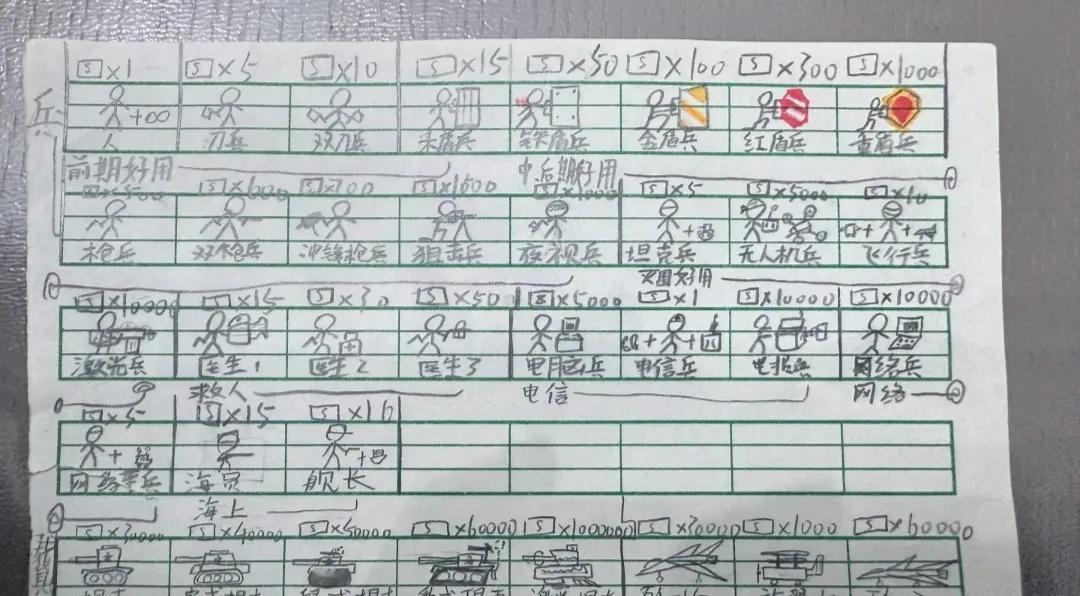 兵
S×1 S×5 S×10 S×15 S×50 S×100 S×300 S×1000
+∞
人 刀兵 双刀兵 木盾兵 铁盾兵 金盾兵 红盾兵 盾兵
前期好用 中后期好用
S×500 S×600 S×700 S×1500 S×5 S×5000 S×10
枪兵 双枪兵 冲锋枪兵 狙击兵 夜视兵 坦克兵 无人机兵 飞行兵
好用
S×10000 S×15 S×30 S×50 S×5000 S×1 S×10000 S×10000
激光兵 医生1 医生2 医生3 电脑兵 电信兵 电报兵 网络兵
救人 电信 网络
S×5 S×15 S×10
网络军兵 海员 舰长
海上
S×30000 S×40000 S×50000 S×60000 S×1000000 S×30000 S×1000 S×60000